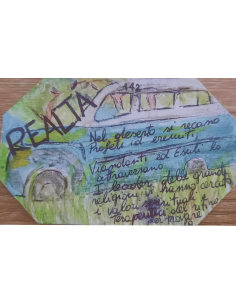 REALTA
142
Nel deserto si recano
Profeti ed eremiti
Viandanti ed Esuli lo
attraversano
I leader delle grandi
religioni hanno cercato
i valori
Terapeutici del ritiro